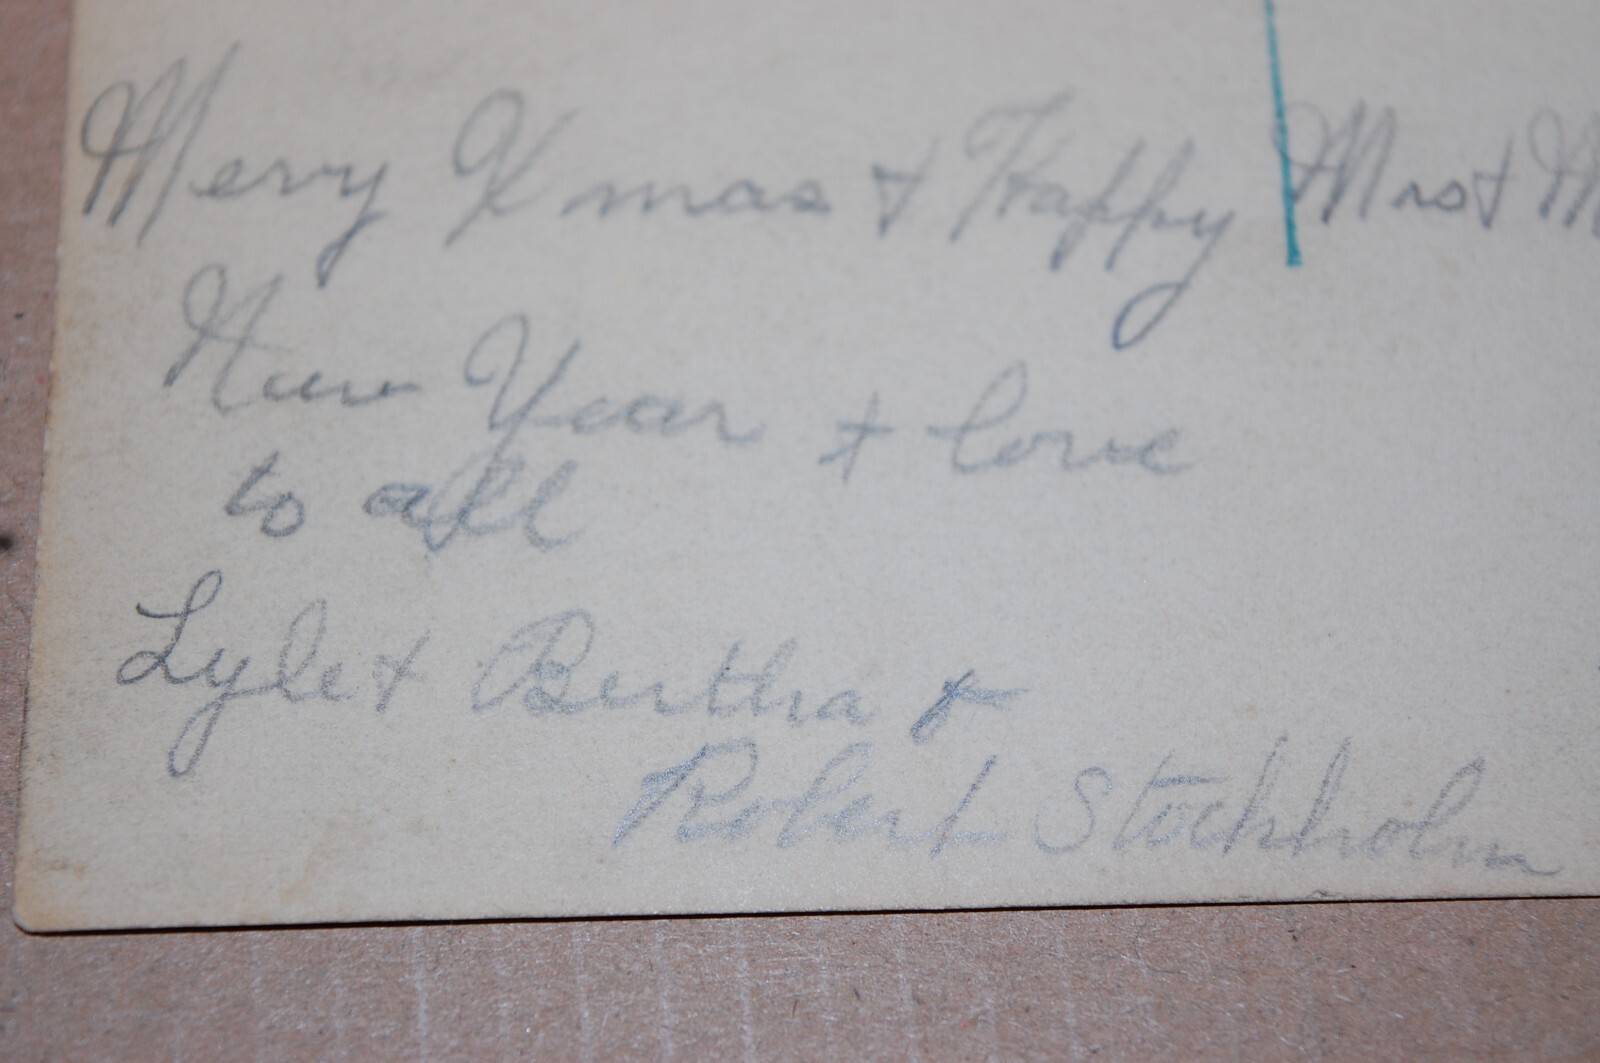 Merry Xmas + Happy
New Year + love
to all
Lyle + Bertha +
Robert Stockholm
Mrs + M